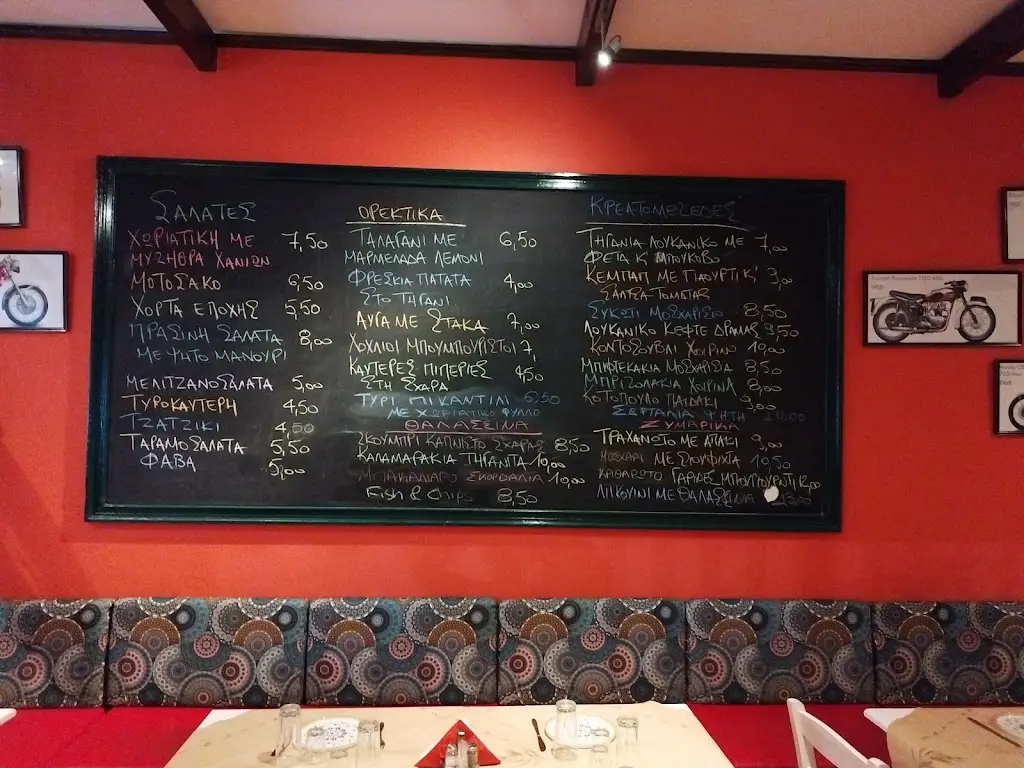 ΣΑΛΑΤΕΣ
ΧΩΡΙΑΤΙΚΗ ΜΕ 7,50
ΜΥΖΗΘΡΑ ΧΑΝΙΩΝ
ΜΟΤΟΣΑΚΟ 6,50
ΧΟΡΤΑ ΕΠΟΧΗΣ 5,50
ΠΡΑΣΙΝΗ ΣΑΛΑΤΑ 8,00
ΜΕ ΨΗΤΟ ΜΑΝΟΥΡΙ
ΜΕΛΙΤΖΑΝΟΣΑΛΑΤΑ 5,00
ΤΥΡΟΚΑΥΤΕΡΗ 4,50
ΤΖΑΤΖΙΚΙ 4,50
ΤΑΡΑΜΟΣΑΛΑΤΑ 5,50
ΦΑΒΑ 5,00
ΟΡΕΚΤΙΚΑ
ΤΑΛΑΓΑΝΙ ΜΕ 6,50
ΜΑΡΜΕΛΑΔΑ ΛΕΜΟΝΙ
ΦΡΕΣΚΙΑ ΠΑΤΑΤΑ 4,00
ΣΤΟ ΤΗΓΑΝΙ
ΑΥΓΑ ΜΕ ΣΤΑΚΑ 7,00
ΧΟΧΛΙΟΙ ΜΠΟΥΜΠΟΥΡΙΣΤΟΙ 7,
ΚΑΥΤΕΡΕΣ ΠΙΠΕΡΙΕΣ 4,50
ΣΤΗ ΣΧΑΡΑ
ΤΥΡΙ ΠΙΚΑΝΤΙΛΙ 6,50
ΜΕ ΧΩΡΙΑΤΙΚΟ ΦΥΛΛΟ
ΘΑΛΑΣΣΙΝΑ
ΣΚΟΥΜΠΡΙ ΚΑΠΝΙΣΤΟ ΣΧΑΡΑΣ 8,50
ΚΑΛΑΜΑΡΑΚΙΑ ΤΗΓΑΝΙΤΑ 10,00
ΜΠΑΚΑΛΙΑΡΟ ΣΚΟΡΔΑΛΙΑ 10,00
Fish & Chips 8,50
ΚΡΕΑΤΟΜΕΖΕΔΕΣ
ΤΗΓΑΝΙΑ ΛΟΥΚΑΝΙΚΟ ΜΕ 7,00
ΦΕΤΑ Κ' ΜΠΟΥΚΟΒΟ
ΚΕΜΠΑΠ ΜΕ ΓΙΑΟΥΡΤΙ Κ' 9,00
ΣΑΛΤΣΑ ΤΟΜΑΤΑΣ
ΣΥΚΩΤΙ ΜΟΣΧΑΡΙΣΙΟ 8,50
ΛΟΥΚΑΝΙΚΟ ΚΕΦΤΕ ΔΡΑΜΑΣ 9,50
ΚΟΝΤΟΣΟΥΒΛΙ ΧΟΙΡΙΝΟ 10,00
ΜΠΙΦΤΕΚΑΚΙΑ ΜΟΣΧΑΡΙΣΙΑ 8,50
ΜΠΡΙΖΟΛΑΚΙΑ ΧΟΙΡΙΝΑ 8,00
ΚΟΤΟΠΟΥΛΟ ΠΑΙΔΑΚΙ 9,00
ΣΕΦΤΑΛΙΑ ΨΗΤΗ
ΖΥΜΑΡΙΚΑ
ΤΡΑΧΑΝΩΤΟ ΜΕ ΑΠΑΚΙ 9,00
ΜΟΣΧΑΡΙ ΜΕ ΣΙΟΥΦΙΧΤΑ 10,50
ΚΡΙΘΑΡΩΤΟ ΓΑΡΙΔΕΣ ΜΠΟΥΓΙΟΥΡΝΤΙ 12,00
ΛΙΓΚΟΥΙΝΙ ΜΕ ΘΑΛΑΣΣΙΝΑ 13,00